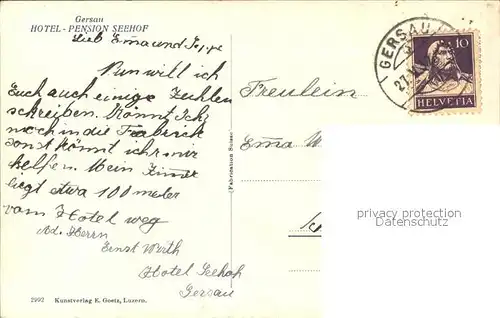 Gersau
HOTEL - PENSION SEEHOF
Lieb Emma und Seppi
Nun will ich
Euch auch einige Zeihlen
schreiben. Könnt Ich
noch in die Fabrick
sonst könnt ich mir
helfen. Mein Zimer
liegt etwa 100 meder
vom Hotel weg
Ad. Herrn
Ernst Wirth
Hotel Seehof
Gersau
2992 Kunstverlag E. Goetz, Luzern.
(Fabrication Suisse)
Freulein
Ema W
GERSAU
27.
10
HELVETIA
privacy protection
WATERMARK